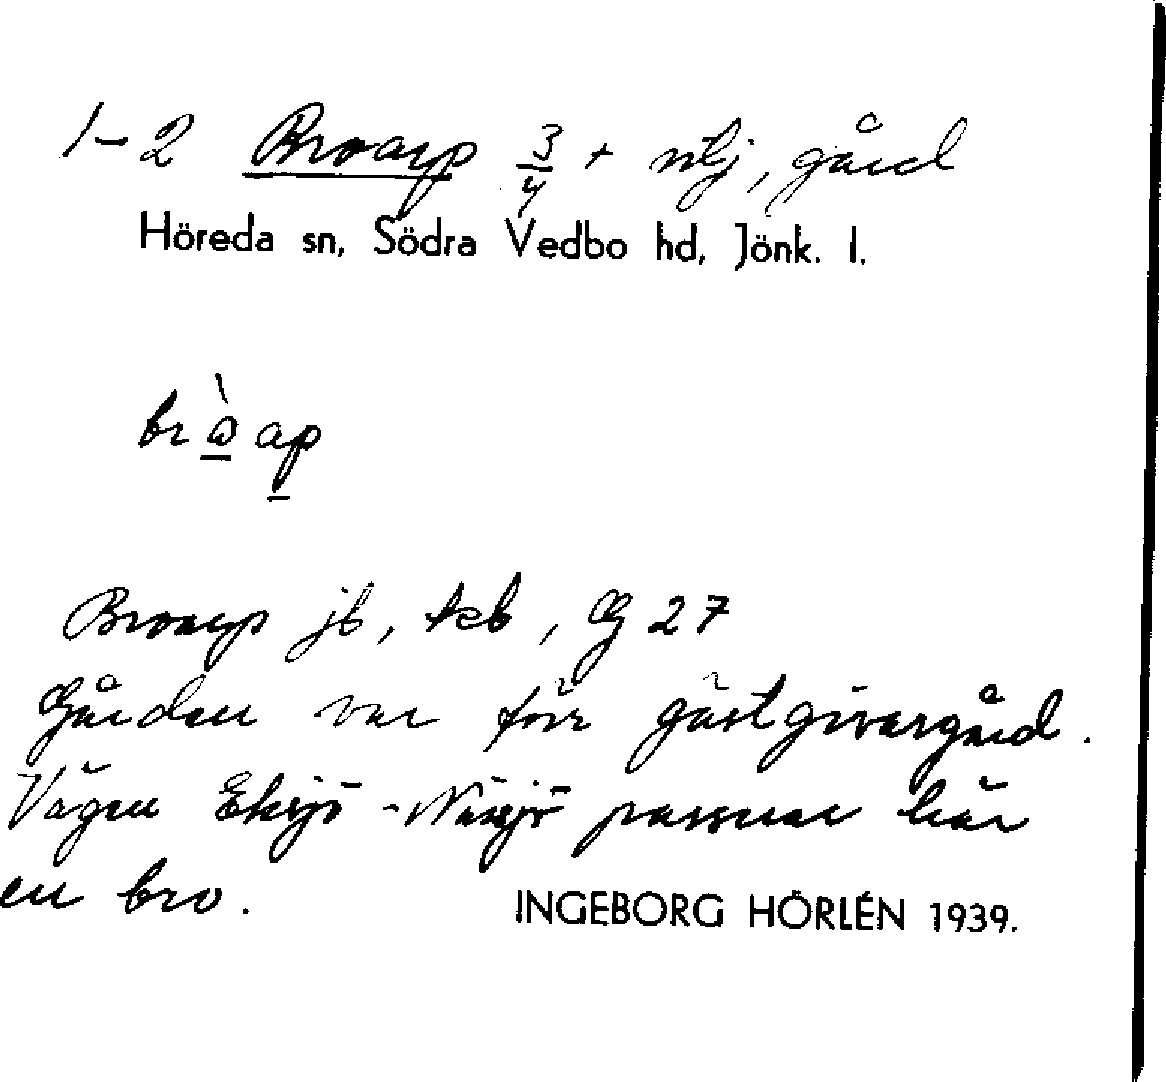 1-2 Broarp 3/4 + utj, gård
Höreda sn, Södra Vedbo hd, Jönk. l.
Broarp jb, kb, G 27
Gården var förr gästgivargård.
Vägen Eksjö - Nässjö passerar här
en bro.
INGEBORG HÖRLÉN 1939.